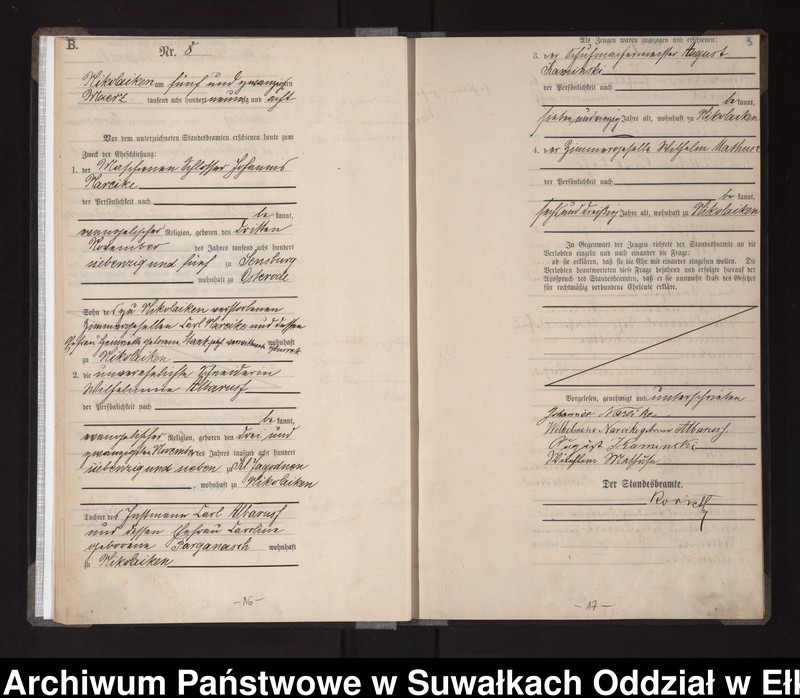 B.
Nr. 8
Nikolaiken am fünf und zwanzigsten
Maerz tausend acht hundert neunzig und acht
Vor dem unterzeichneten Standesbeamten erschienen heute zum
Zweck der Eheschließung:
1. der Maschienen Schlosser Johannes
Narcike
der Persönlichkeit nach
be kannt,
evangelischer Religion, geboren den dritten
November des Jahres tausend acht hundert
siebenzig und fünf zu Sensburg
, wohnhaft zu Osterode
Sohn des zu Nikolaiken verstorbenen
Zimmergesellen Carl Narcike und dessen
Ehefrau Henriette geborene wohnhaft
zu Nikolaiken
2. die unverehelichte Schneiderin
Wilhelmine Albarus
der Persönlichkeit nach
be kannt,
evangelischer Religion, geboren den drei und
zwanzigsten November des Jahres tausend acht hundert
siebenzig und sieben zu Kl Jagodnen
, wohnhaft zu Nikolaiken
Tochter des Instmann Carl Albarus
und dessen Ehefrau Caroline
geborene wohnhaft
zu Nikolaiken
-16-
Als Zeugen waren zugezogen und erschienen:
3. der Schuhmachermeister August
Kaminski
der Persönlichkeit nach
be kannt,
sieben und vierzig Jahre alt, wohnhaft zu Nikolaiken
4. der Zimmergeselle Wilhelm
der Persönlichkeit nach
be kannt,
sechs und dreißig Jahre alt, wohnhaft zu Nikolaiken
In Gegenwart der Zeugen richtete der Standesbeamte an die
Verlobten einzeln und nach einander die Frage:
ob sie erklären, daß sie die Ehe mit einander eingehen wollen. Die
Verlobten beantworteten diese Frage bejahend und erfolgte hierauf der
Ausspruch des Standesbeamten, daß er sie nunmehr kraft des Gesetzes
für rechtmäßig verbundene Eheleute erkläre.
Vorgelesen, genehmigt und unterschrieben
Johannes Narcike
Wilhelmine Narcike geborene Albarus
August Kaminski
Wilhelm
Der Standesbeamte.
-17-
Archiwum Państwowe w Suwałkach Oddział w Ełk